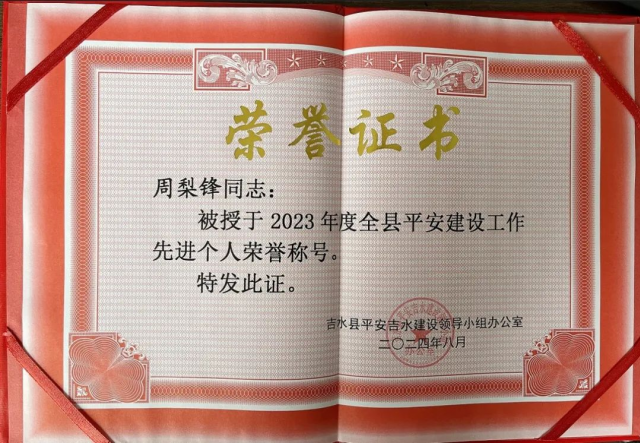 荣誉证书
周梨锋同志：
被授于 2023 年度全县平安建设工作
先进个人荣誉称号。
特发此证。
吉水县平安吉水建设领导小组办公室
二〇二四年八月
办公室